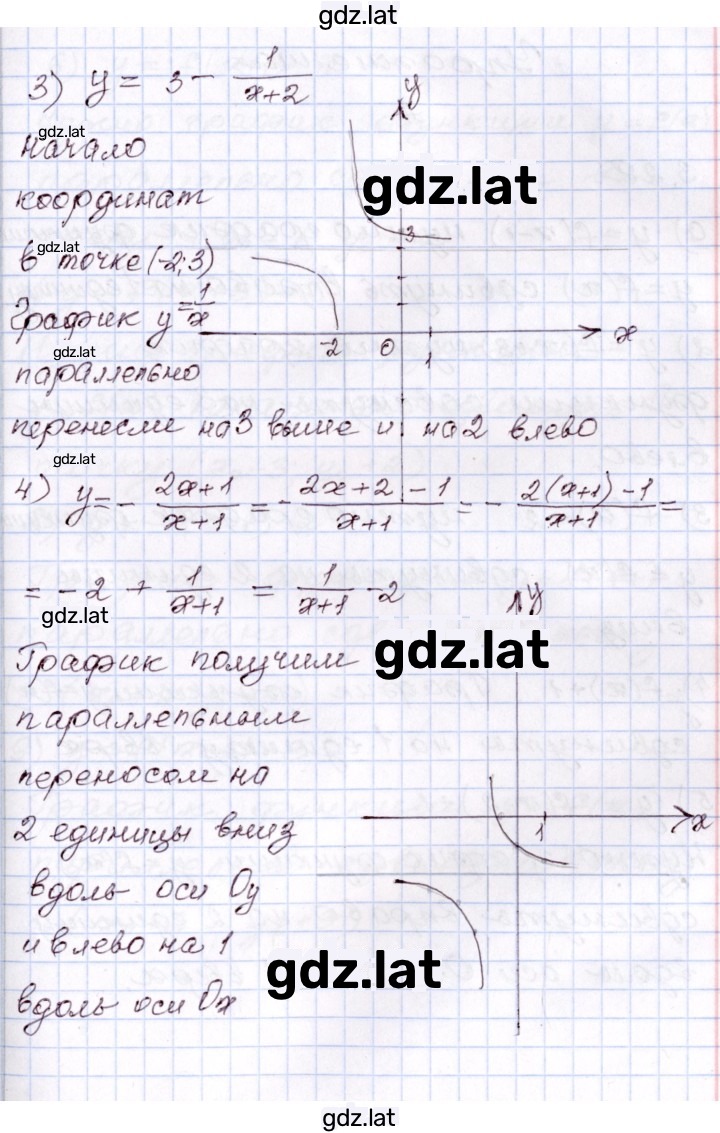 gdz.lat
3) y = 3 - 1/(x+2)
y
gdz.lat
начало
координат
gdz.lat
gdz.lat
в точке (-2; 3)
3
График y = 1/x
-2 0 1 x
gdz.lat
параллельно
перенесли на 3 выше и на 2 влево
gdz.lat
4) y = - (2x+1)/(x+1) = - (2x+2-1)/(x+1) = - (2(x+1)-1)/(x+1) =
= -2 + 1/(x+1) = 1/(x+1) -2
y
gdz.lat
График получим
gdz.lat
параллельным
переносом на
2 единицы вниз
1 x
вдоль оси Oy
и влево на 1
gdz.lat
вдоль оси Ox
gdz.lat